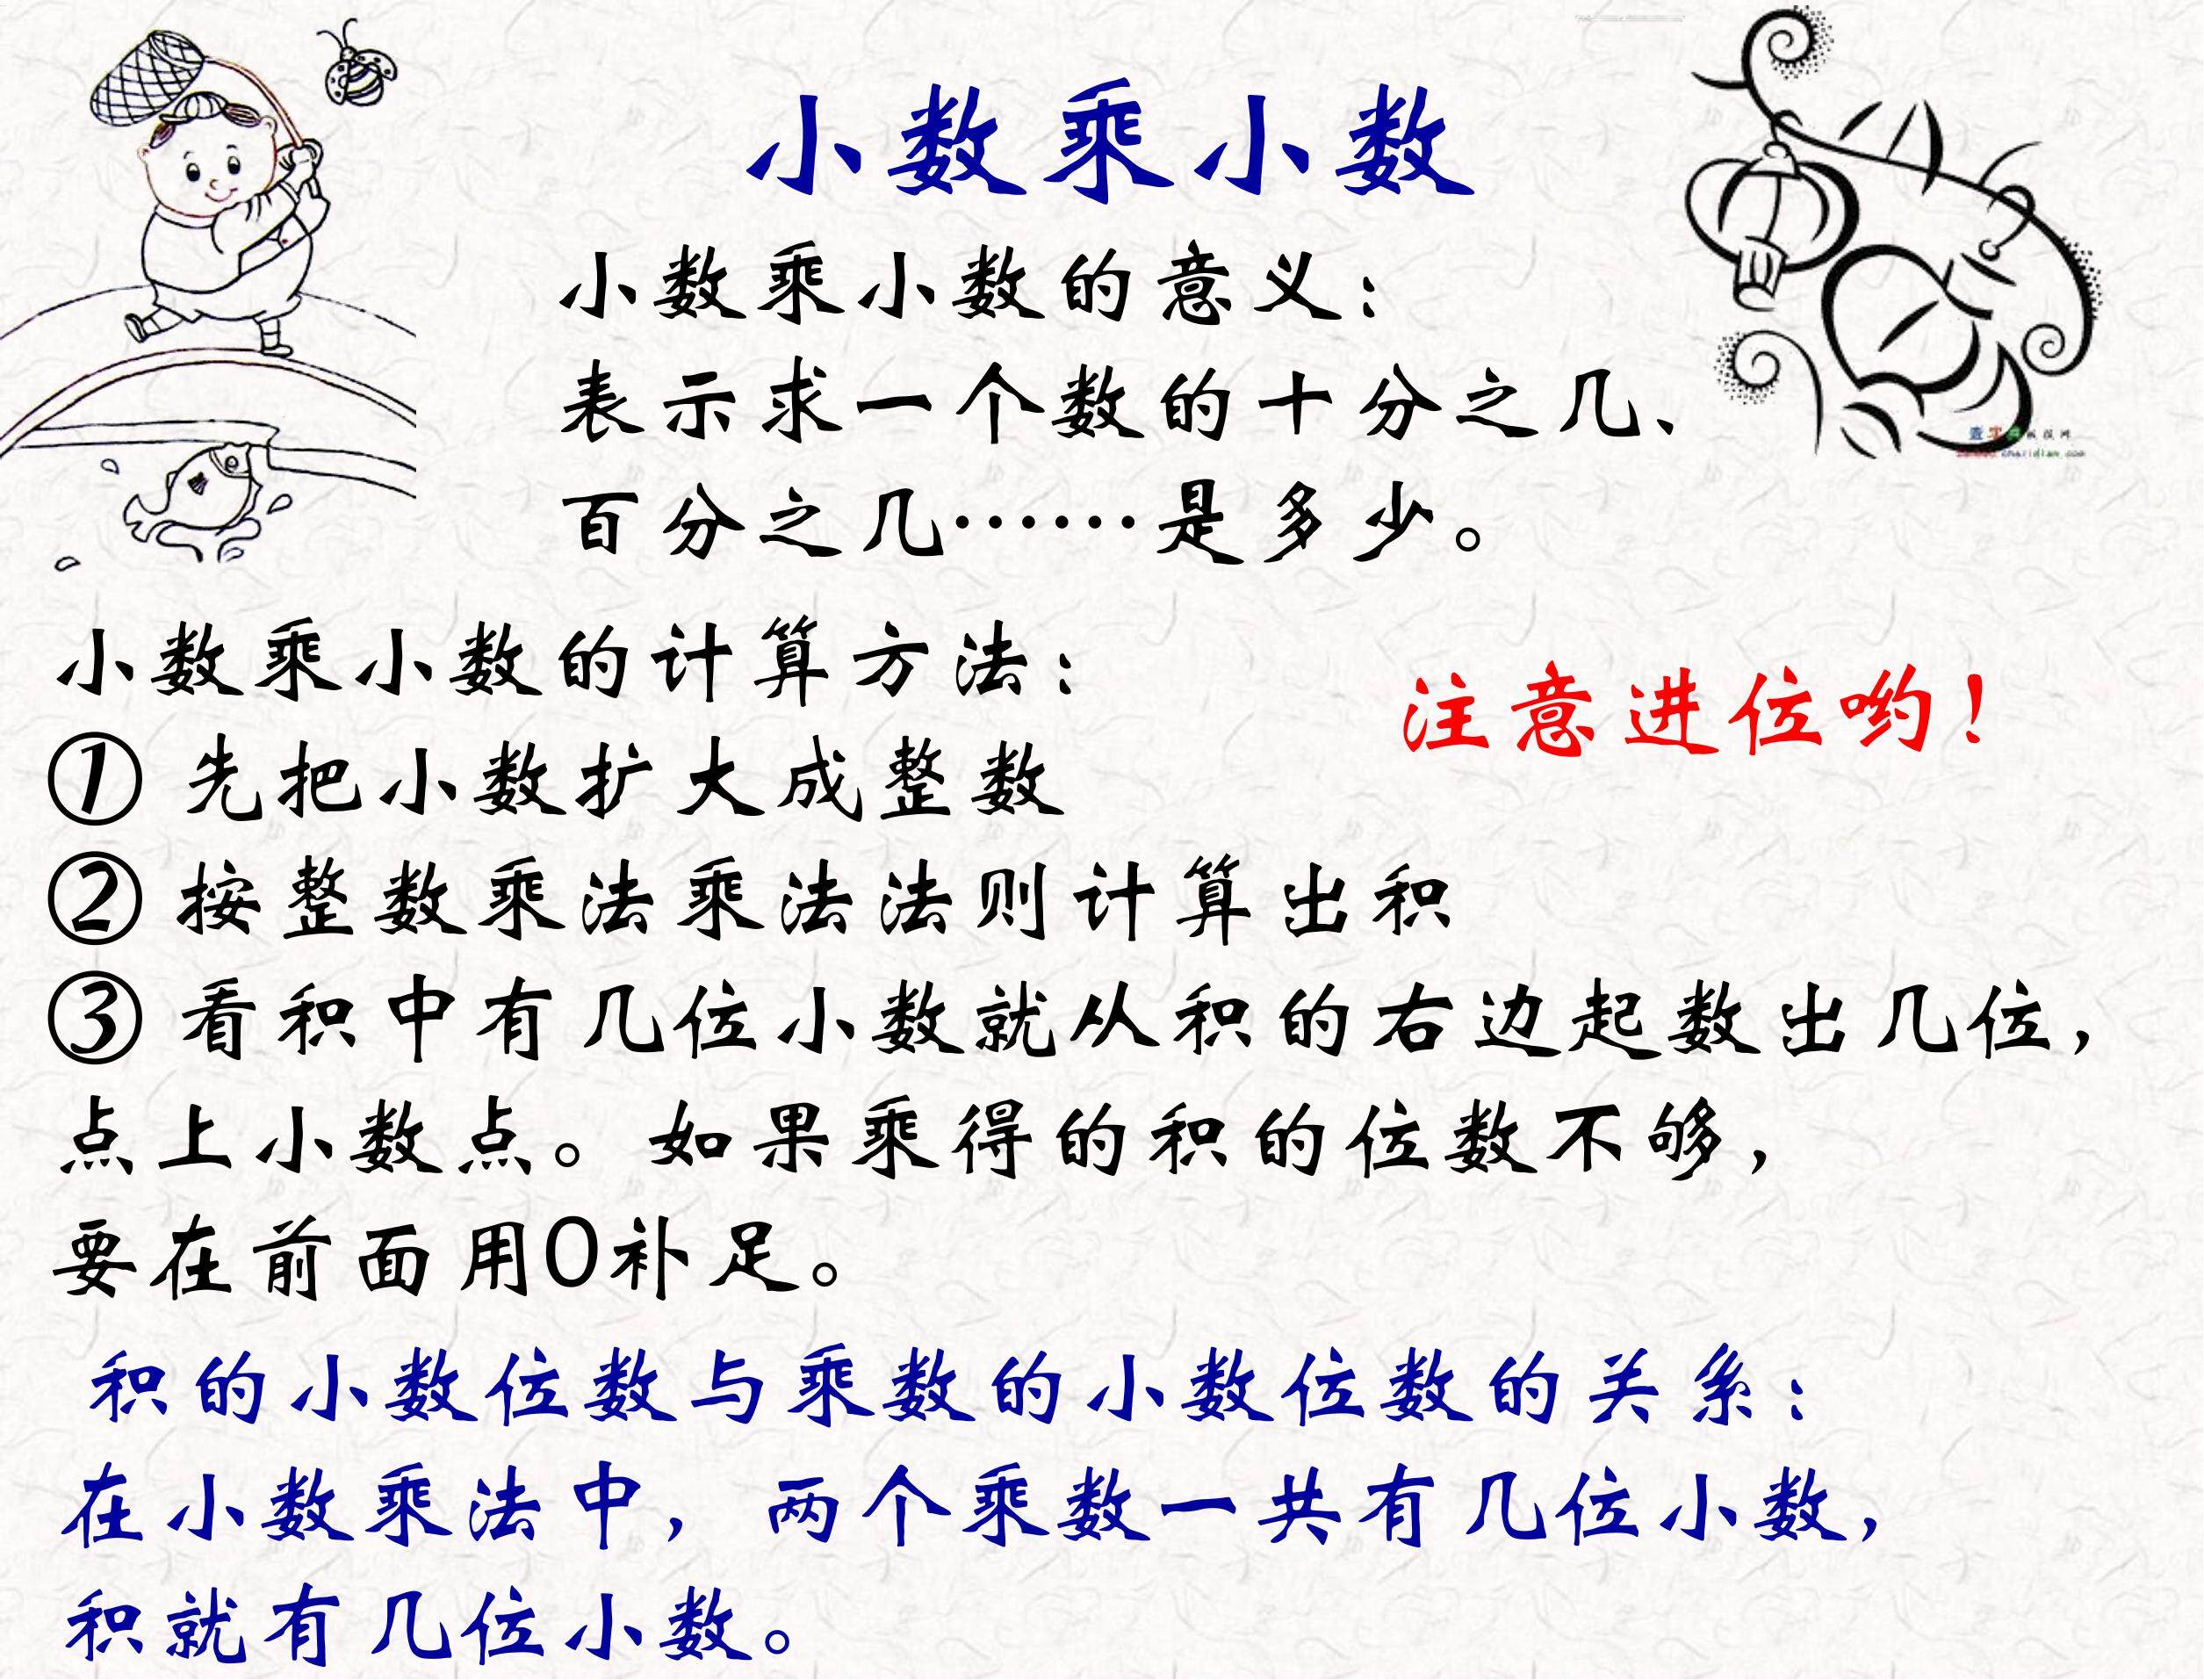 小数乘小数
小数乘小数的意义：
表示求一个数的十分之几、
百分之几……是多少。
小数乘小数的计算方法：
注意进位哟！
① 先把小数扩大成整数
② 按整数乘法乘法法则计算出积
③ 看积中有几位小数就从积的右边起数出几位，
点上小数点。如果乘得的积的位数不够，
要在前面用0补足。
积的小数位数与乘数的小数位数的关系：
在小数乘法中，两个乘数一共有几位小数，
积就有几位小数。